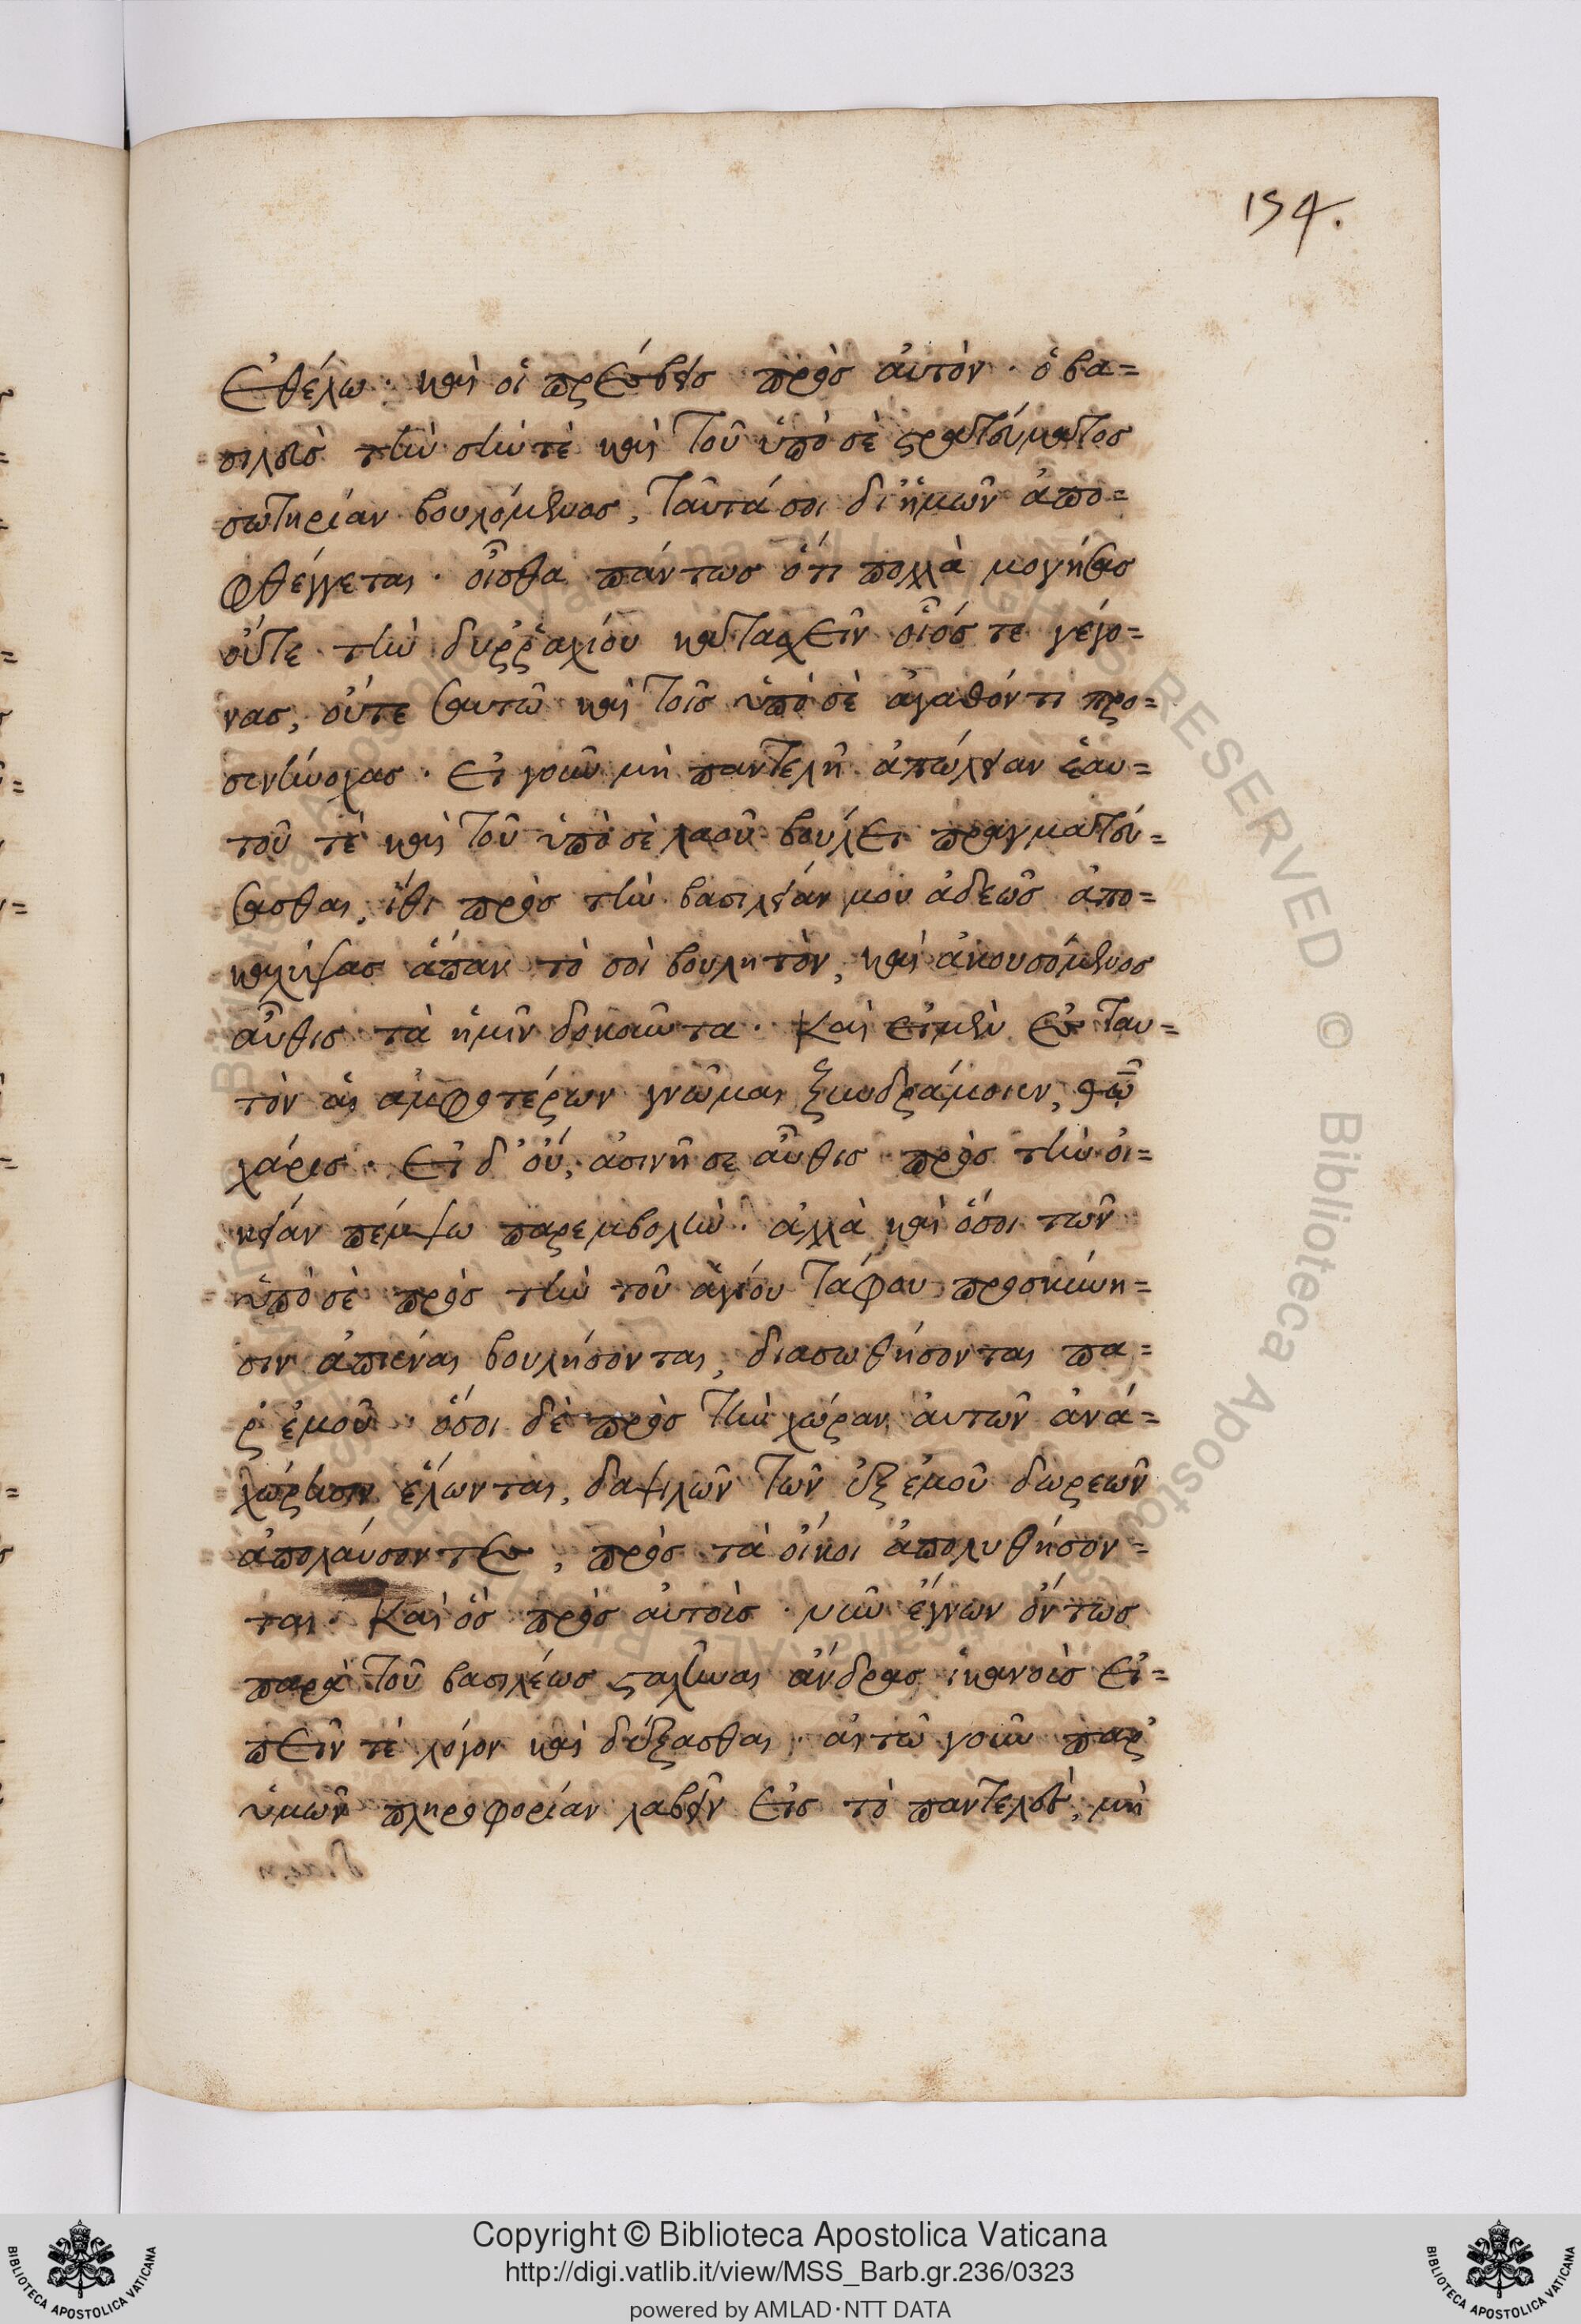 154.
ἐθέλω· καὶ οἱ πρέσβεις πρὸς αὐτὸν· ὁ βα=
σιλεὺς τὴν σήν τὲ καὶ τοῦ ὑπὸ σὲ στρατεύματος
σωτηρίαν βουλόμενος, ταῦτά σοι δι' ἡμῶν ἀπο=
φθέγγεται· οἶσθα πάντως ὅτι πολλὰ μογήσας
οὔτε τὴν δυῤῥαχίου κατασχεῖν οἷός τε γέγο=
νας, οὔτε σαυτῶ καὶ τοῖς ὑπὸ σὲ ἀγαθόν τι προ=
σενήνοχας· εἰ γοῦν μὴ παντελῆ ἀπώλειαν ἑαυ=
τοῦ τὲ καὶ τοῦ ὑπὸ σὲ λαοῦ βούλει πραγματεύ=
σασθαι, ἴθι πρὸς τὴν βασιλείαν μου ἀδεῶς ἀπο=
καλύψας ἅπαν τὸ σοὶ βουλητὸν, καὶ ἀκουσόμενος
αὖθις τὰ ἡμῖν δοκοῦντα· Καὶ εἰ μὲν εἰς ταυ=
τὸν αἱ ἀμφοτέρων γνῶμαι ξυνδράμοιεν, θῶ
χάρις· εἰ δ' οὔ, ἀσινῆ σε αὖθις πρὸς τὴν οἰ=
κείαν πέμψω παρεμβολὴν· ἀλλὰ καὶ ὅσοι τῶν
ὑπὸ σὲ πρὸς τὴν τοῦ ἁγίου τάφου προσκύνη=
σιν ἀπιέναι βουλήσονται, διασωθήσονται πα=
ρ' ἐμοῦ· ὅσοι δὲ πρὸς τὴν χώραν αὐτῶν ἀνα=
χώρησιν ἕλωνται, δαψιλῶν τῶν ἐξ ἐμοῦ δωρεῶν
ἀπολαύσοντες, πρὸς τὰ οἴκοι ἀπολυθήσον=
ται· Καὶ ὃς πρὸς αὐτοὺς· νῦν ἔγνων ὄντως
παρὰ τοῦ βασιλέως σταλῆναι ἄνδρας ἱκανοὺς εἰ=
πεῖν τὲ λόγον καὶ δέξασθαι· αἰτῶ γοῦν παρ'
ὑμῶν πληροφορίαν λαβεῖν εἰς τὸ παντελὲς, μὴ
Copyright © Biblioteca Apostolica Vaticana
http://digi.vatlib.it/view/MSS_Barb.gr.236/0323
powered by AMLAD·NTT DATA